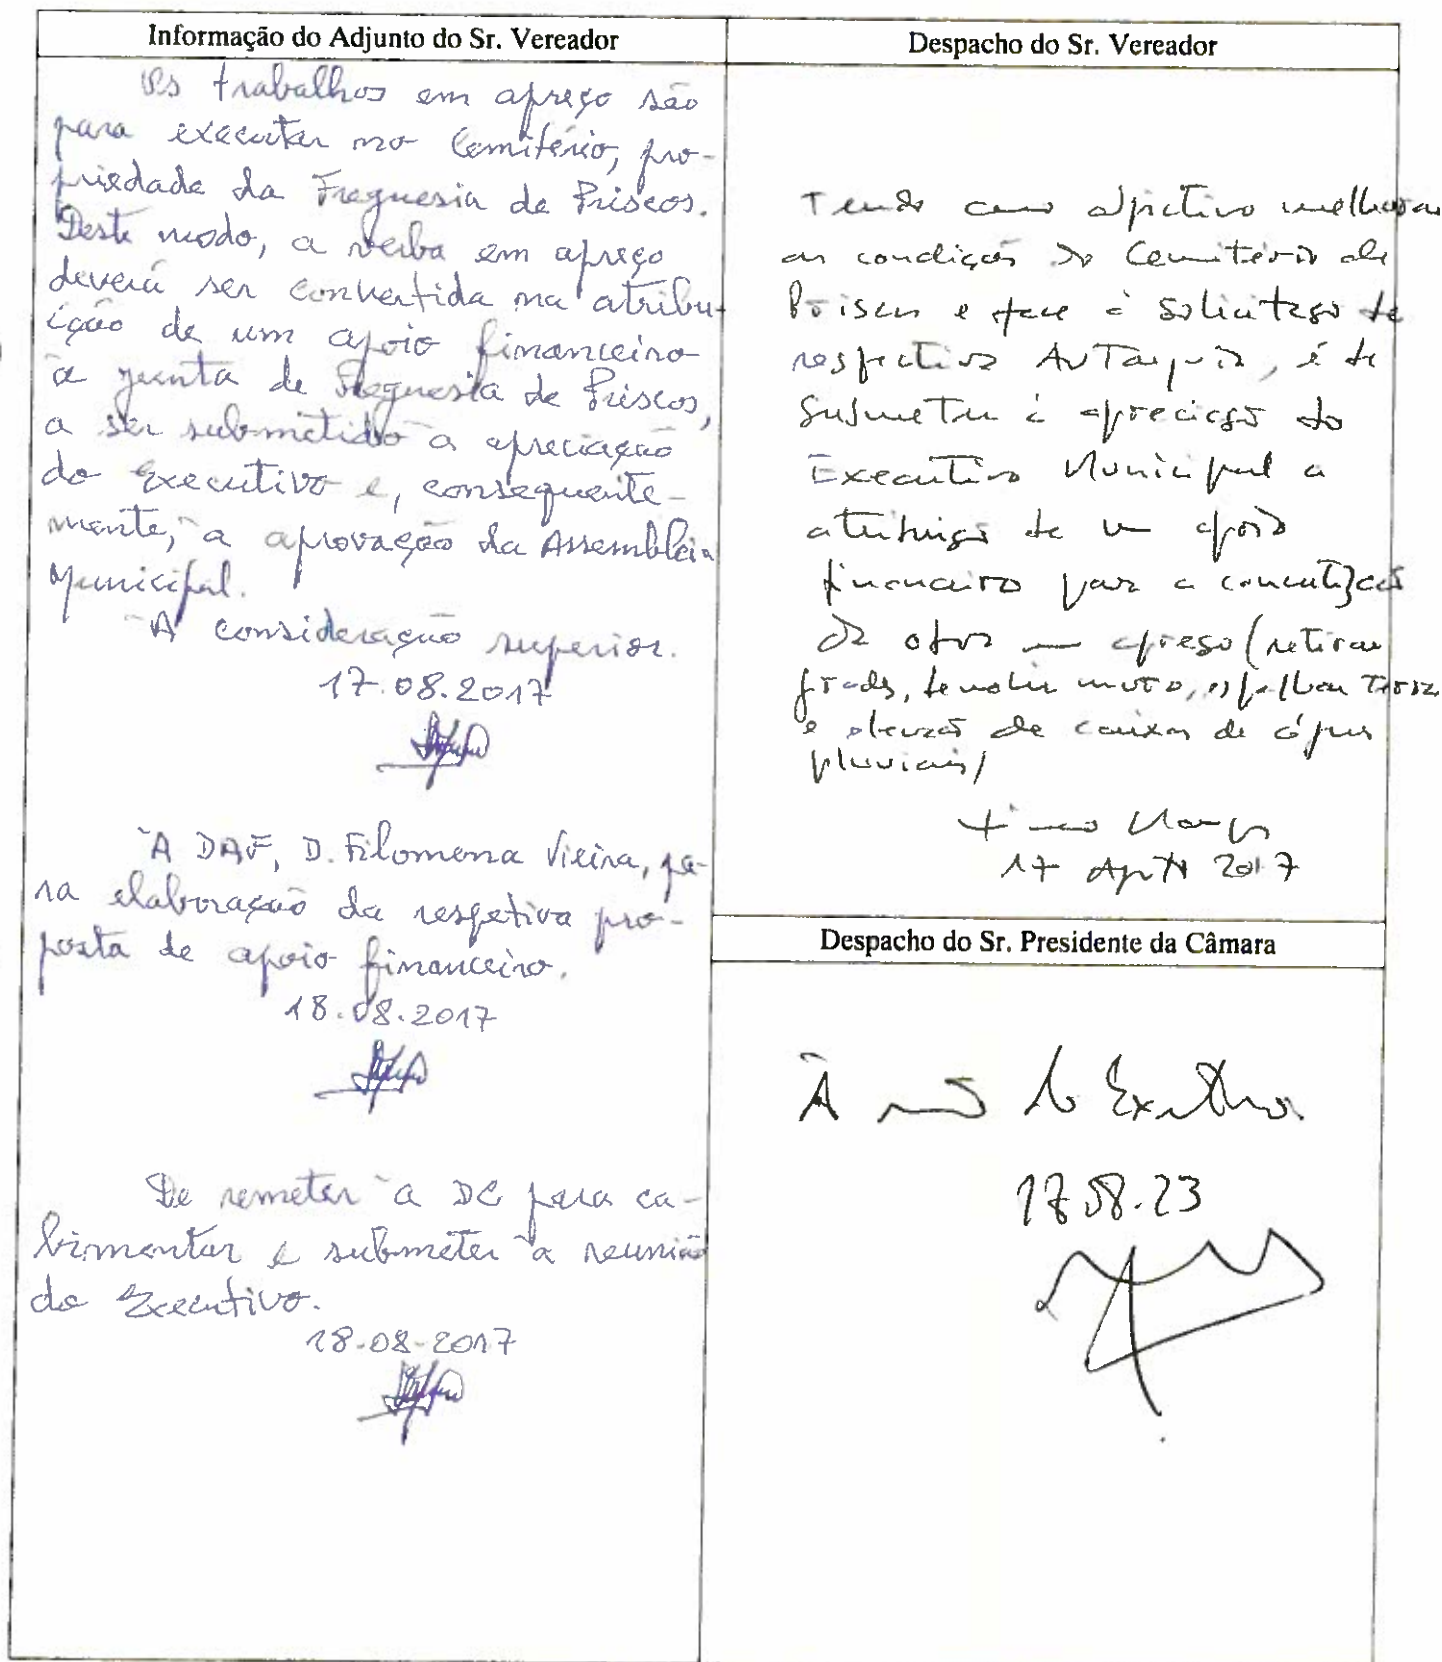 Informação do Adjunto do Sr. Vereador
Os trabalhos em apreço são
para executar no Cemitério, pro-
priedade da Freguesia de Priscos.
Deste modo, a verba em apreço
deverá ser convertida na atribu-
ição de um apoio financeiro
à Junta de Freguesia de Priscos,
a ser submetido à apreciação
do Executivo e, consequente-
mente, à aprovação da Assembleia
Municipal.
À consideração superior.
17.08.2017
À DAF, D. Filomena Vieira, pa-
ra elaboração da respetiva pro-
posta de apoio financeiro.
18.08.2017
De remeter à DC para ca-
bimentar e submeter à reunião
do Executivo.
18-08-2017
Despacho do Sr. Vereador
Tendo como objectivo melhorar
as condições do Cemitério de
Priscos e face à solicitação da
respectiva Autarquia, é de
submeter à apreciação do
Executivo Municipal a
atribuição de um apoio
financeiro para a concretização
da obra em apreço (retirar
grades, demolir muro, espalhar terra
e elevação de caixas de águas
pluviais)
17 Agosto 2017
Despacho do Sr. Presidente da Câmara
À reunião do Executivo.
17.08.23